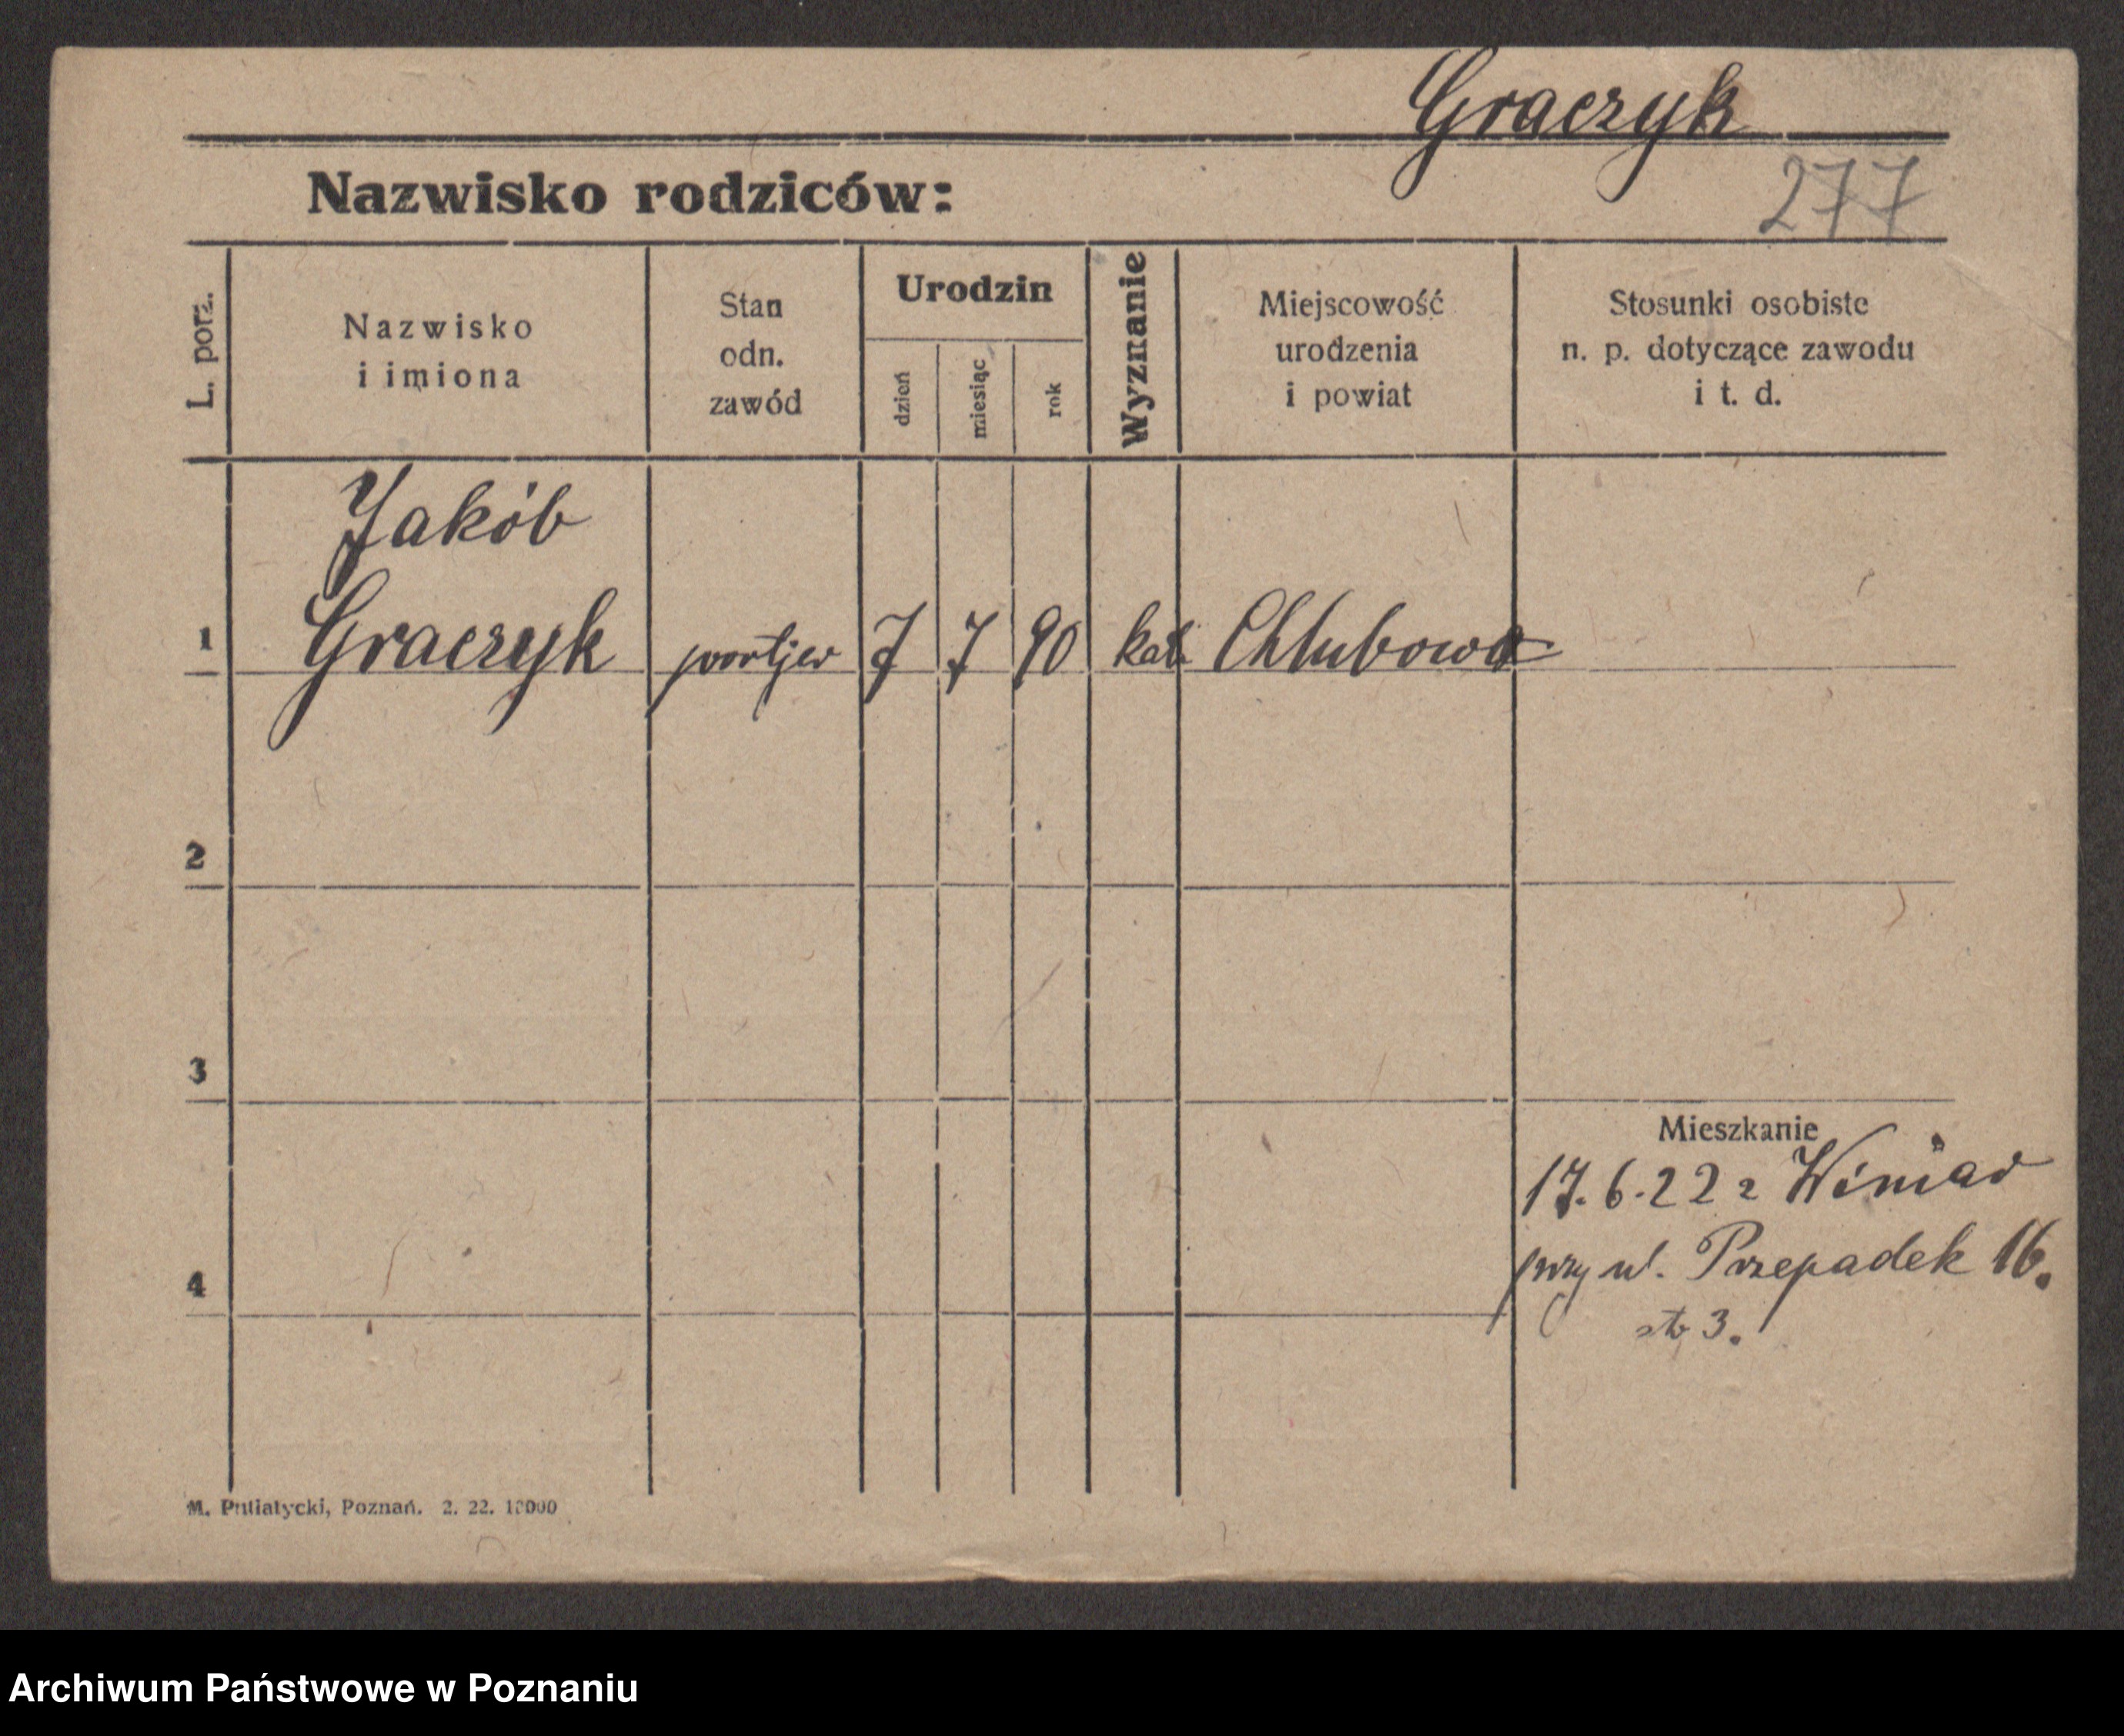 Graczyk
Nazwisko rodziców:
277
L. porz.
Nazwisko
i imiona
Stan
odn.
zawód
Urodzin
dzień
miesiąc
rok
Wyznanie
Miejscowość
urodzenia
i powiat
Stosunki osobiste
n. p. dotyczące zawodu
i t. d.
Jakób
1 Graczyk portjer 7 7 90 kat. Chludowo
2
3
Mieszkanie
17.6.22 z Winiar
przy ul. Przepadek 16.
4
3.
M. Putiatycki, Poznań. 2. 22. 10000
Archiwum Państwowe w Poznaniu